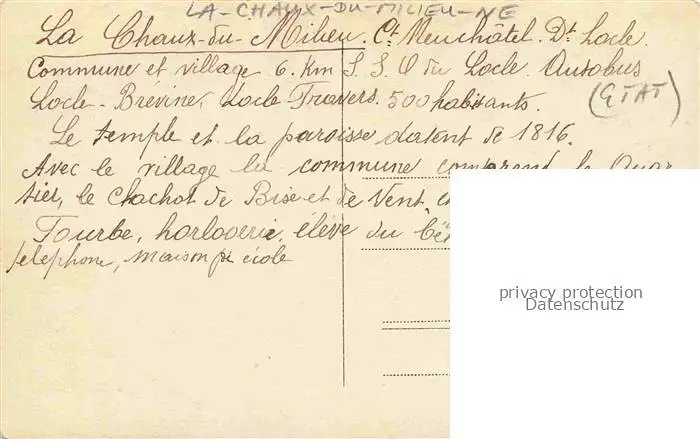 LA-CHAUX-DU-MILIEU-NE
La Chaux-du-Milieu. Ct Neuchâtel. Dt Locle.
Commune et village 6. Km S. S. O du Locle. Autobus
Locle-Brévine, Locle-Travers. 500 habitants.
(ETAT)
Le temple et la paroisse datent de 1816.
Avec le village la commune comprend le Quar
tier, le Cachot de Bise et de Vent,
Tourbe, horlogerie, élève du
telephone, maison de école
privacy protection
Datenschutz